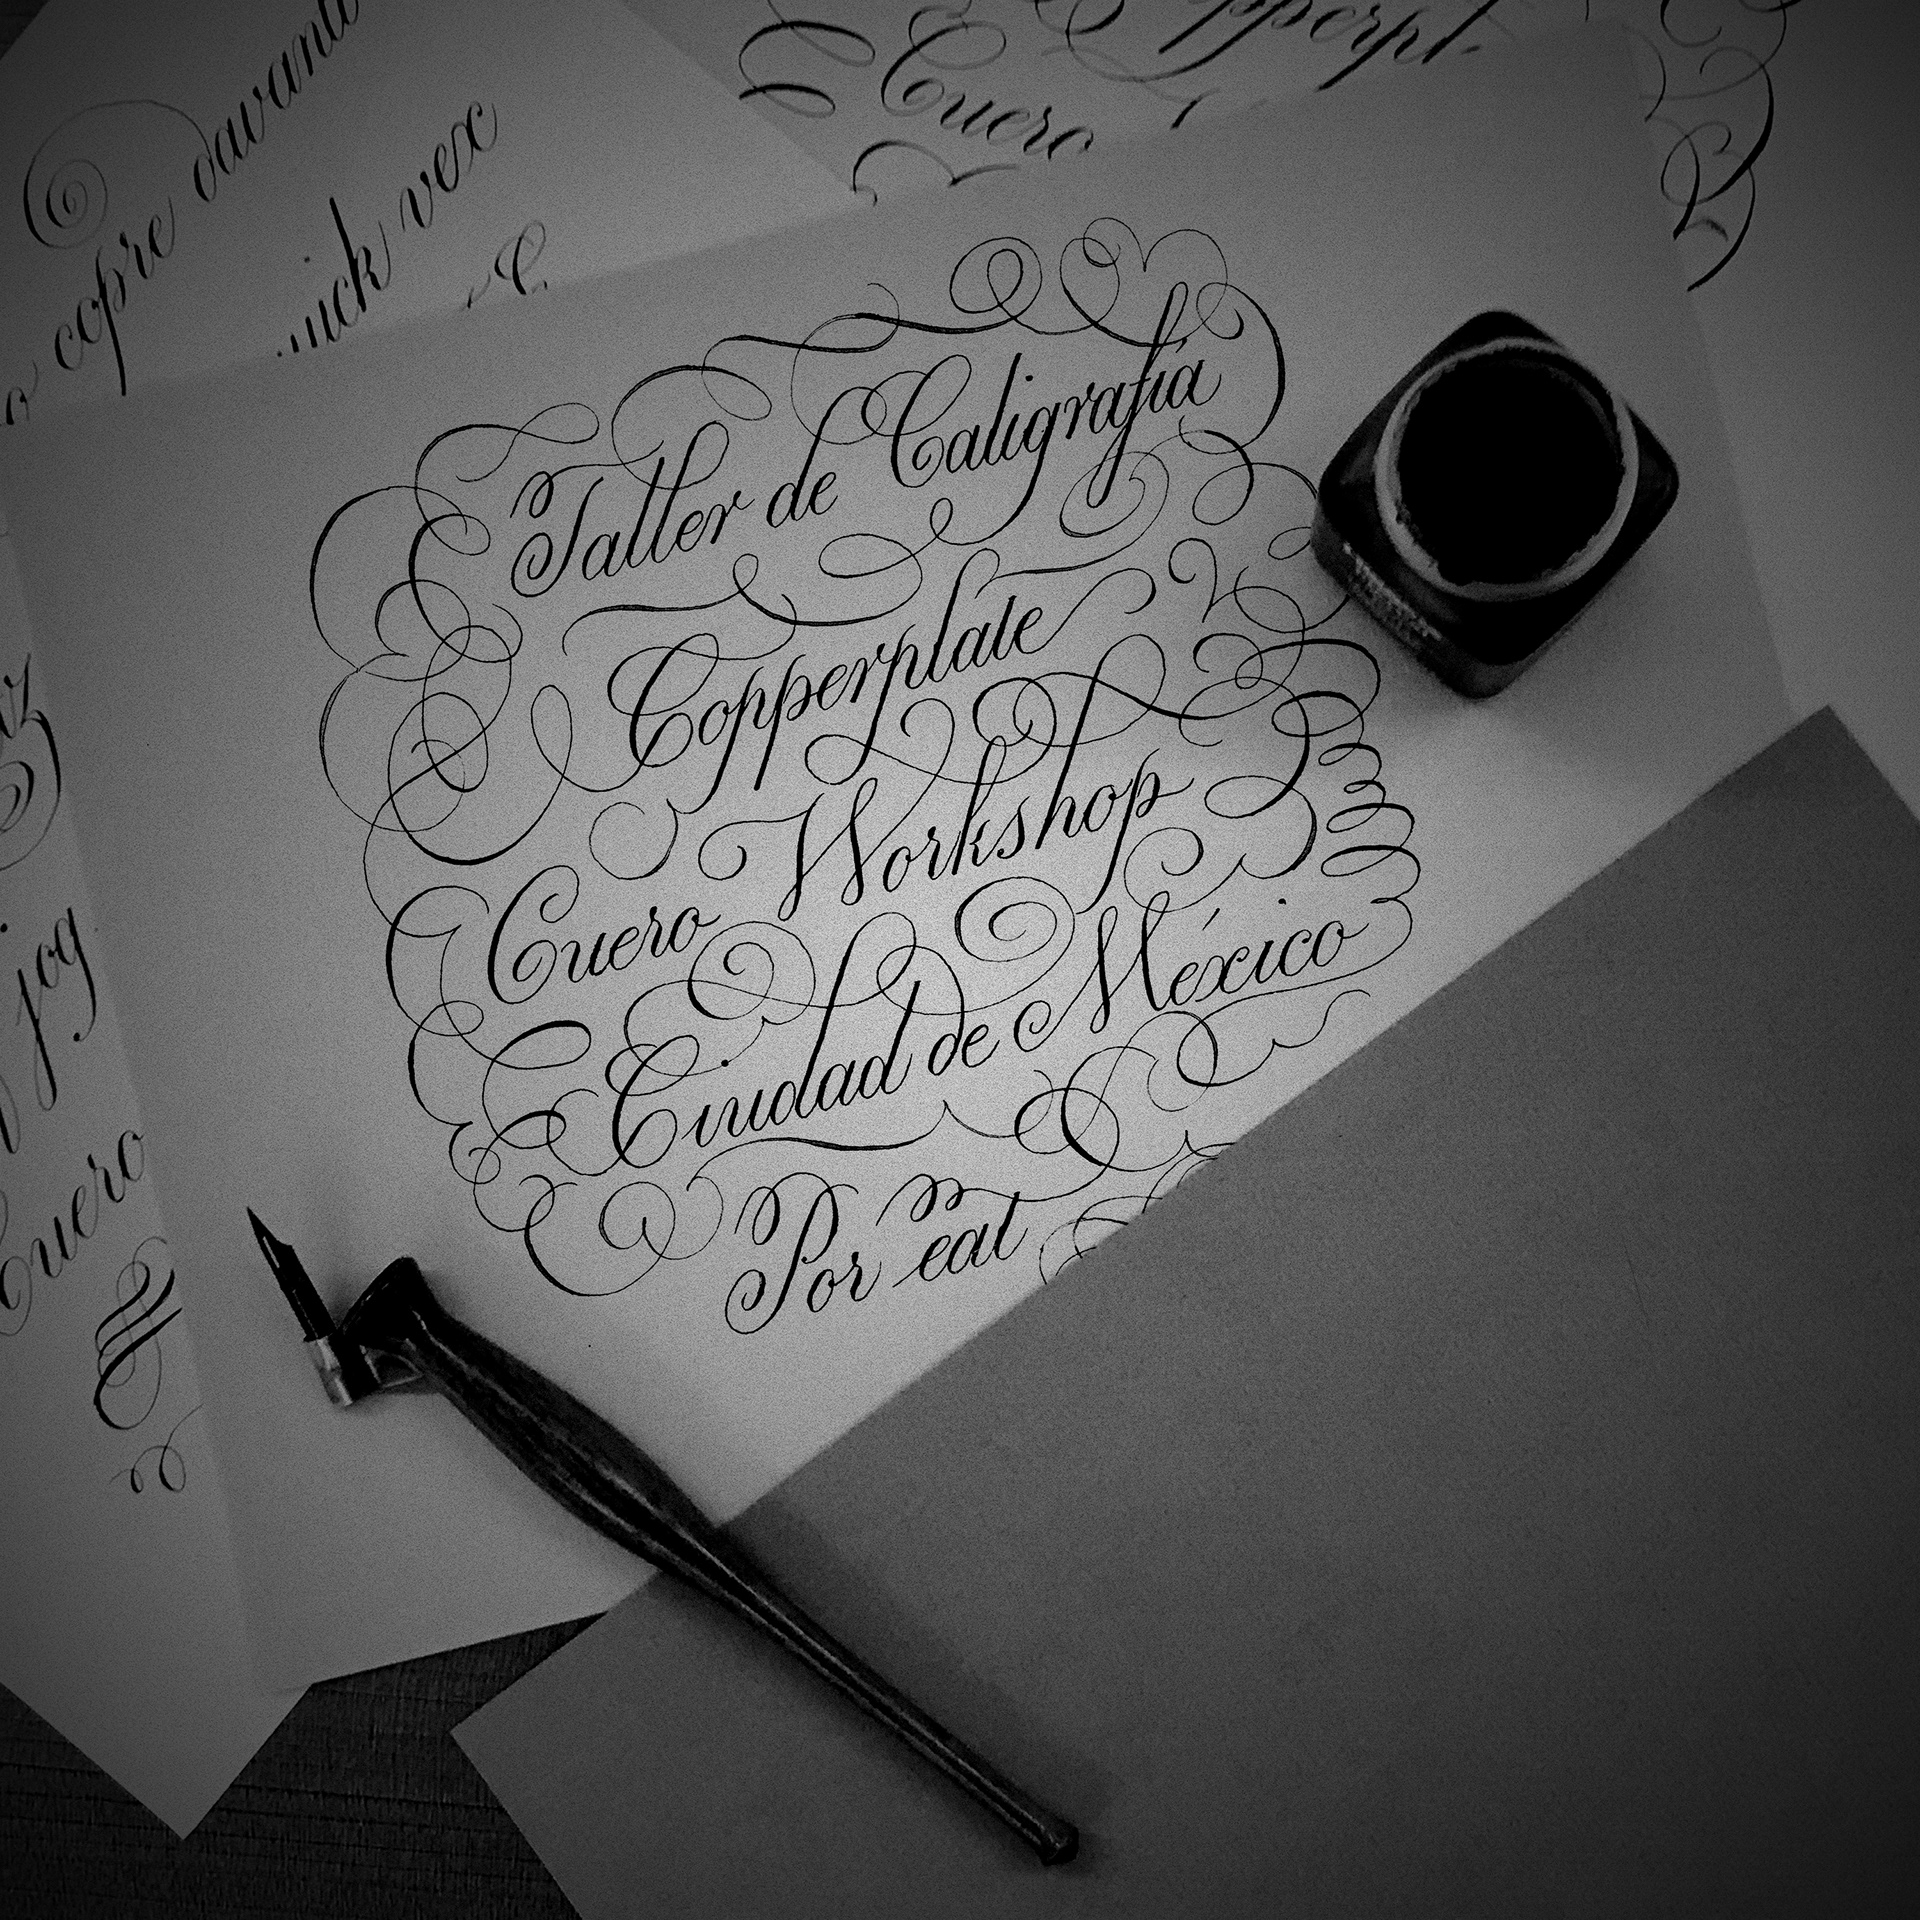 copre davanti
vex
Cuero
Taller de Caligrafía
Copperplate
Workshop
Cuero
Ciudad de México
Por eat
jog
Cuero